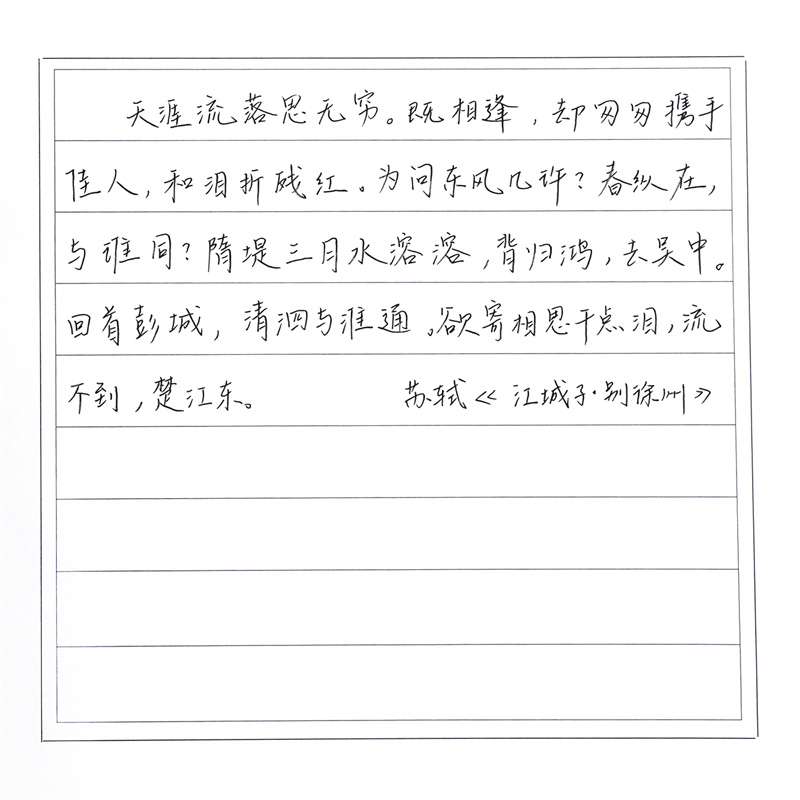 天涯流落思无穷。既相逢，却匆匆携手
佳人，和泪折残红。为问东风几许？春纵在，
与谁同？隋堤三月水溶溶，背归鸿，去吴中。
回首彭城，清泗与淮通。欲寄相思千点泪，流
不到，楚江东。 苏轼《江城子·别徐州》